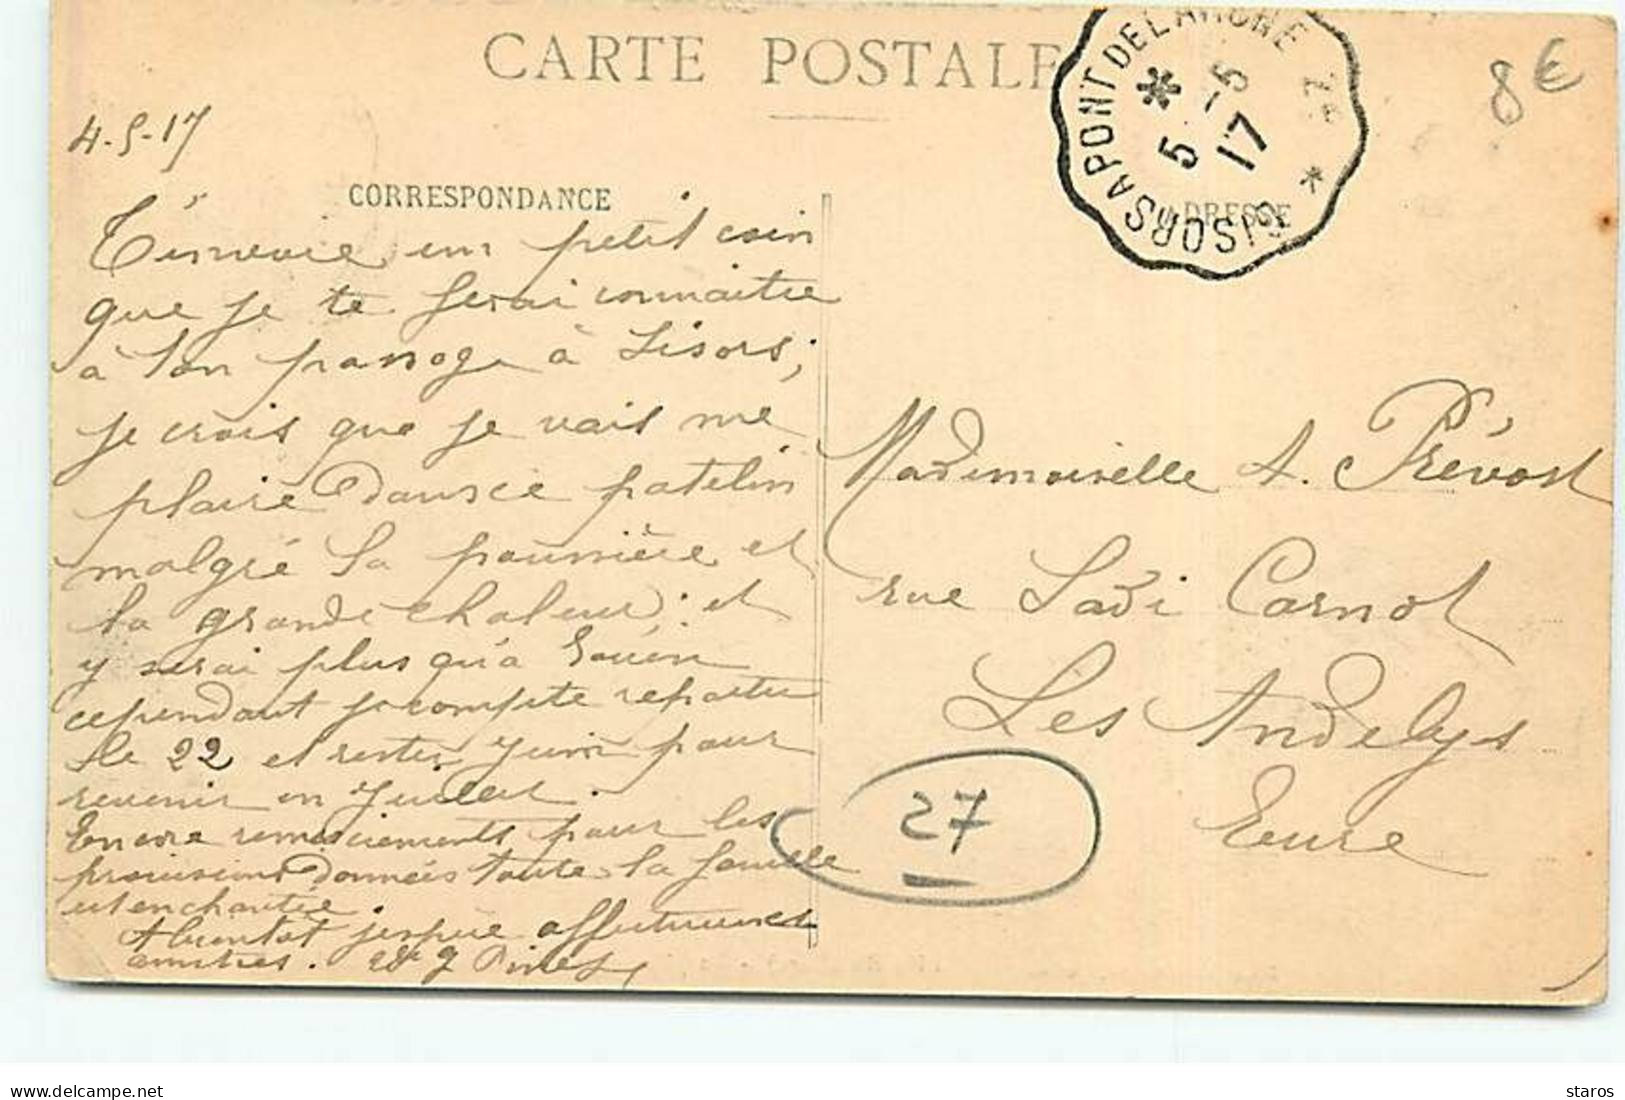 CARTE POSTALE
GISORS A PONT DE L'ARCHE
5 - 5
17
8€
4-5-17
CORRESPONDANCE
ADRESSE
T'envoie un petit coin
que je te ferai connaitre
à ton passage à Lisors;
je crois que je vais me
plaire dans ce patelin
malgré la poussière et
la grande chaleur; et
y serai plus qu'à Rouen
cependant je compte repartir
le 22 et rester Juin pour
revenir en Juillet.
Encore remerciements pour les
provisions données toute la famille
est enchantée
A bientot j'espère affectueuses
amitiés.
Mademoiselle A. Prévost
rue Sadi Carnot
Les Andelys
Eure
27
delcampe.net
staros